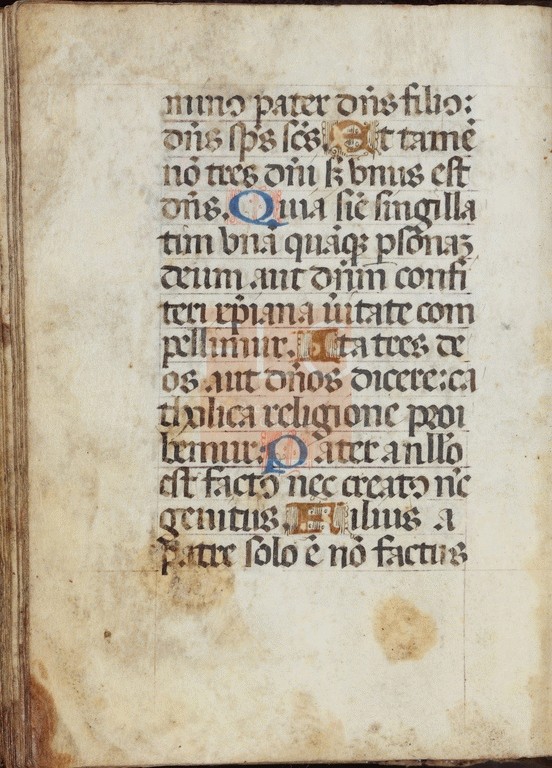 mino pater dñs filio:
dñs sp̃s sc̃s. At tamẽ
nõ tres dñi sꝫ vnus est
dñs. Quia sic̃ singilla
tim vnã quãqꝫ ꝑsonaꝫ
deum aut dñm confi
teri xp̃iana ũitate com
pellimur. Ita tres de
os aut dños dicere: ca
tholica religione proi
bemur: Pater a nllo
est facto nec creato nc̃
genitus. Filius a
patre solo ẽ nõ factus